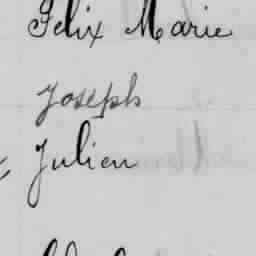 Felix Marie
Joseph
Julien